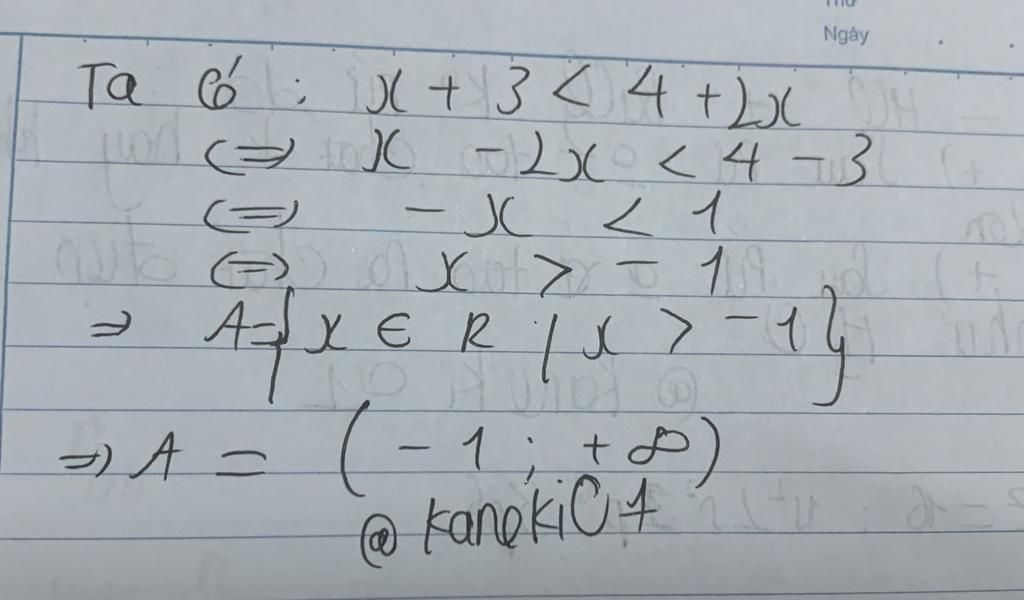 Thứ
Ngày
Ta có : x + 3 < 4 + 2x
<=> x - 2x < 4 - 3
<=> - x < 1
<=> x > - 1
=> A={x ∈ R / x > -1}
=> A = (-1 ; +∞)
@kaneki07